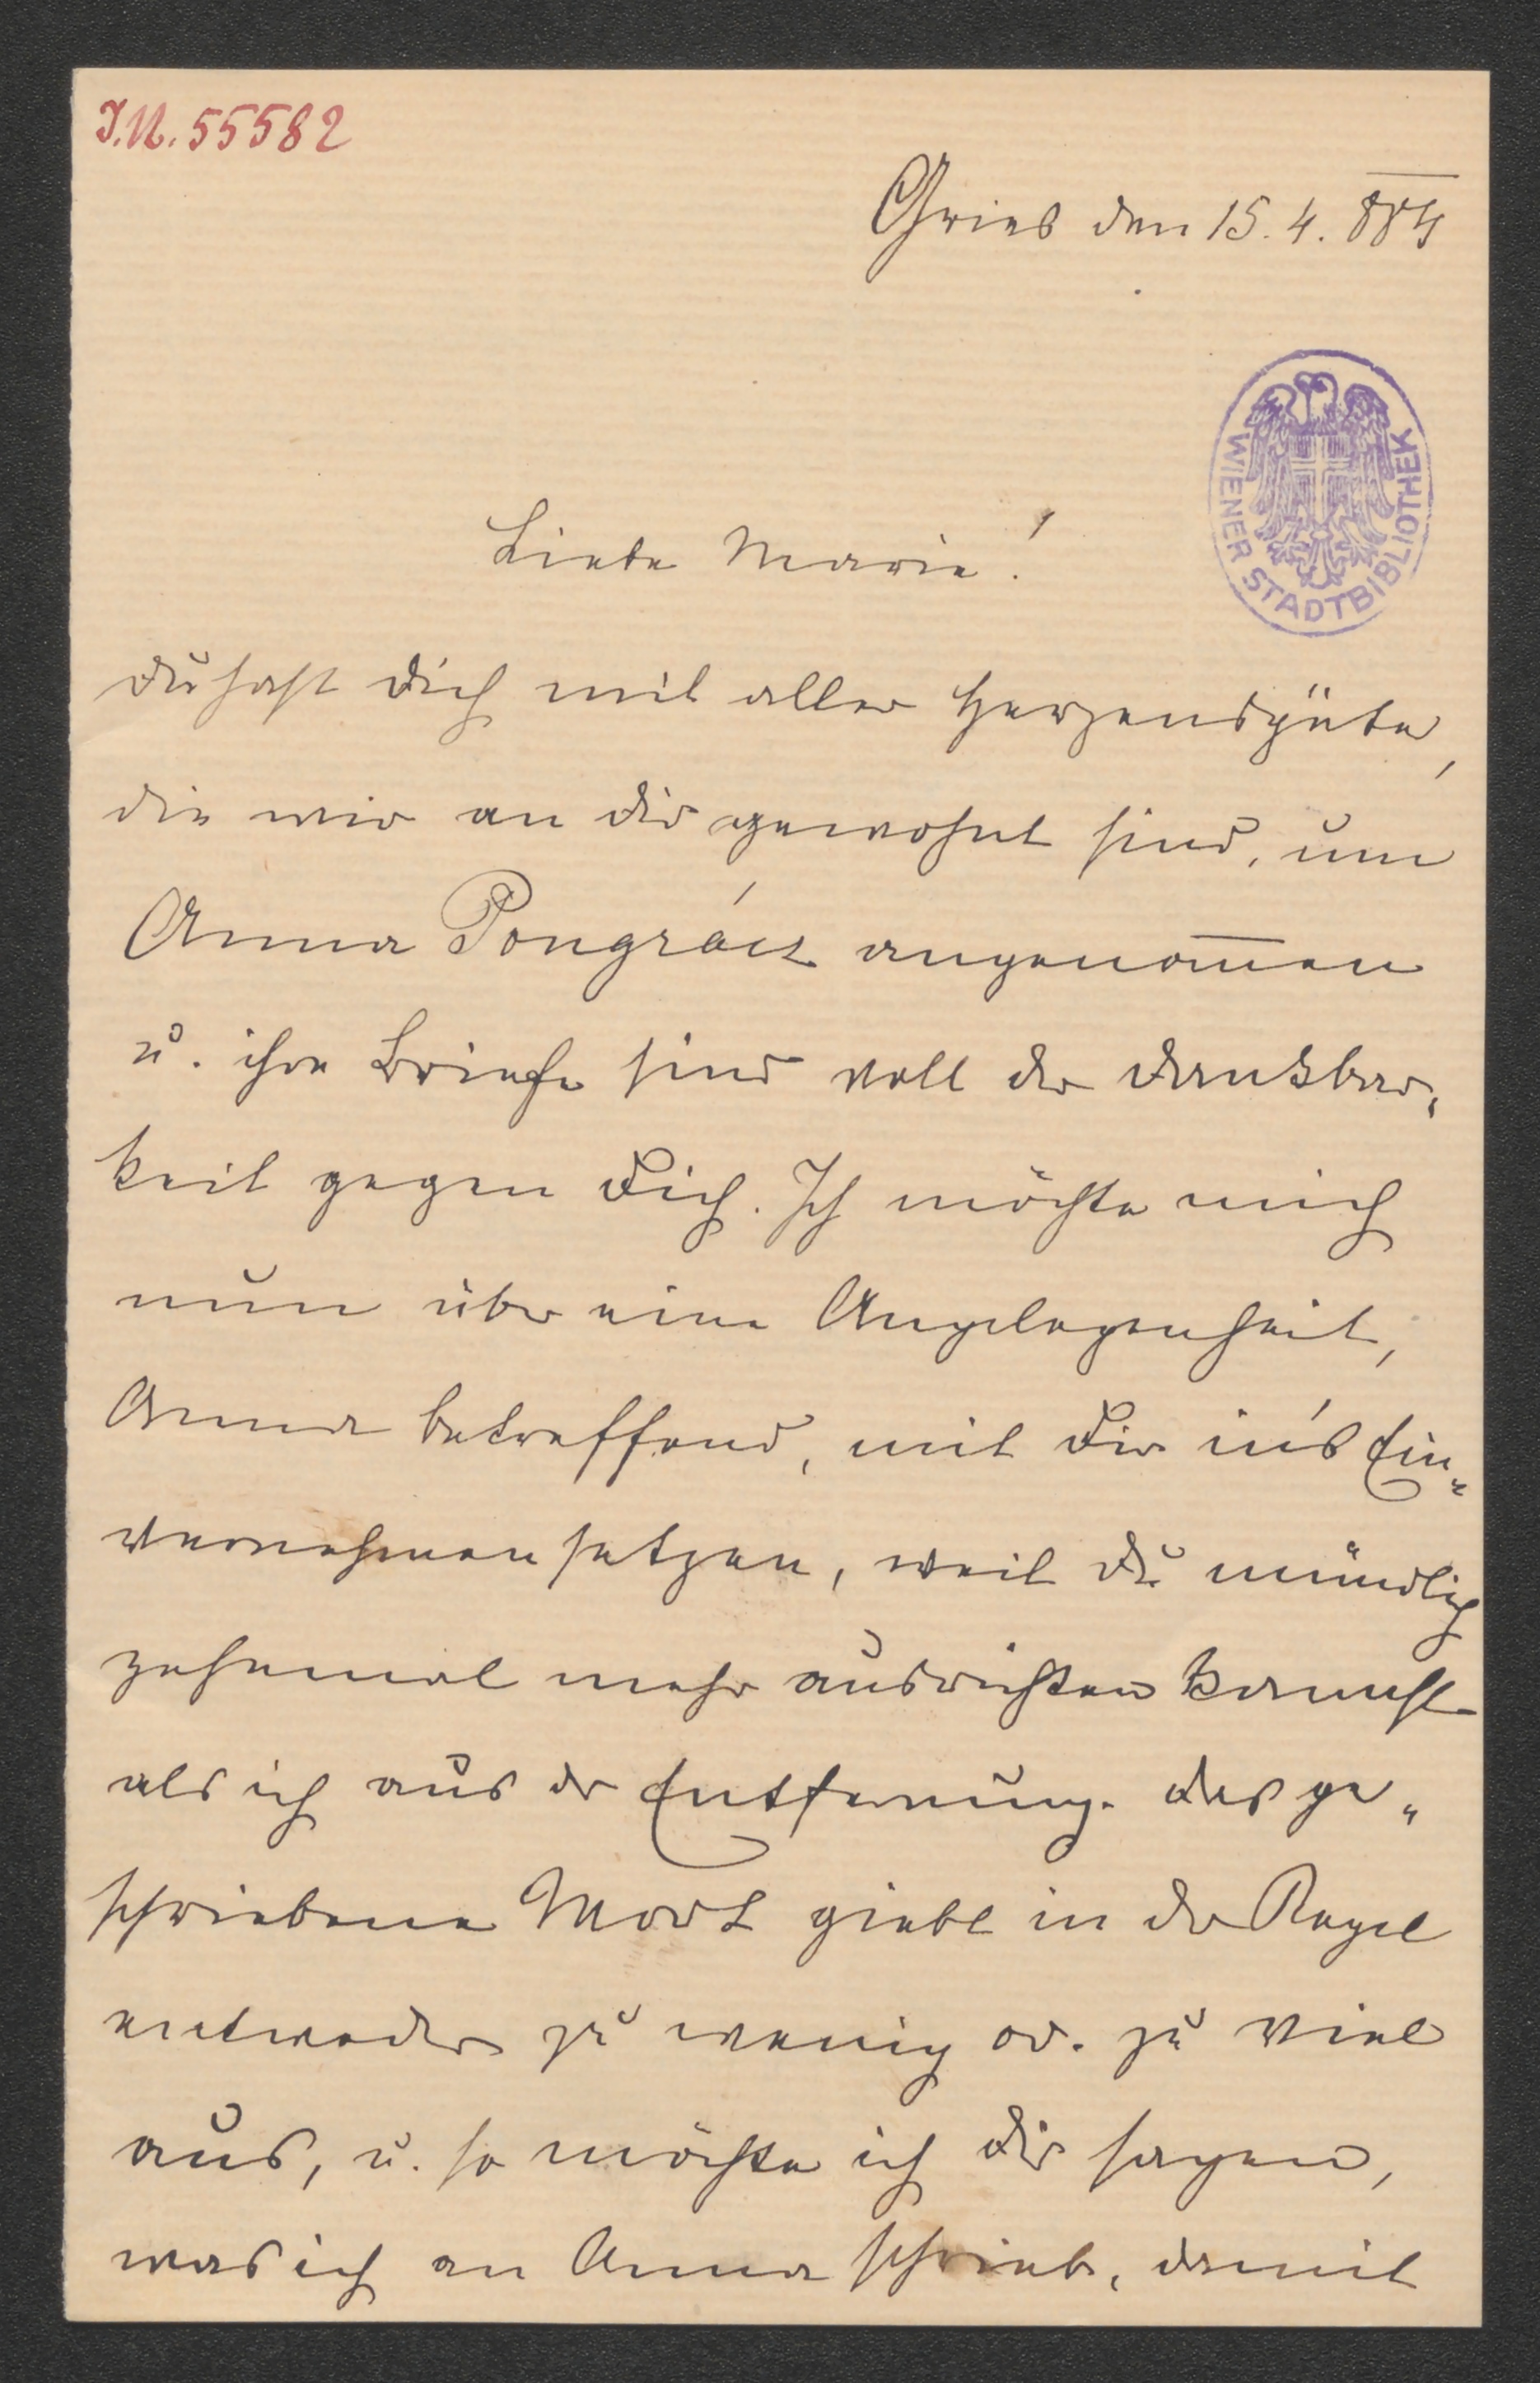 I.N. 55582
Gries den 15. 4. 884
WIENER STADTBIBLIOTHEK
Liebe Marie!
Du hast Dich mit aller Herzensgüte,
die wir an Dir gewohnt sind, um
Anna Pongrácz angenom̄en
u. ihre Briefe sind voll der Dankbar„
keit gegen Dich. Ich möchte mich
nun über eine Angelegenheit,
Anna betreffend, mit Dir in's Ein„
vernehmen setzen, weil Du mündlich
zehnmal mehr ausrichten kannst
als ich aus der Entfernung. Das ge„
schriebene Wort giebt in der Regel
entweder zu wenig od. zu viel
aus, u. so möchte ich Dir sagen,
was ich an Anna schrieb, damit